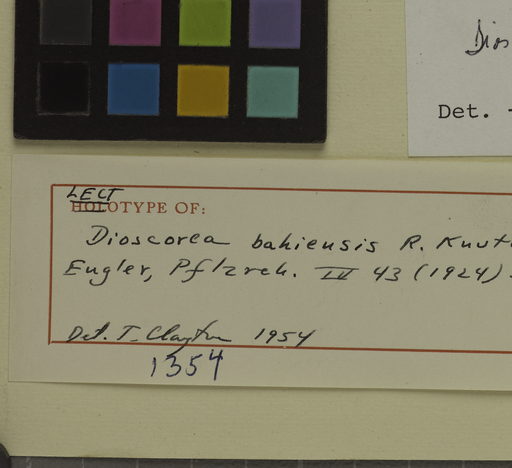 Dios
Det.
LECT
HOLOTYPE OF:
Dioscorea bahiensis R. Knut
Engler, Pflzrch. IV 43 (1924).
Det. T. Clayton 1954
1354